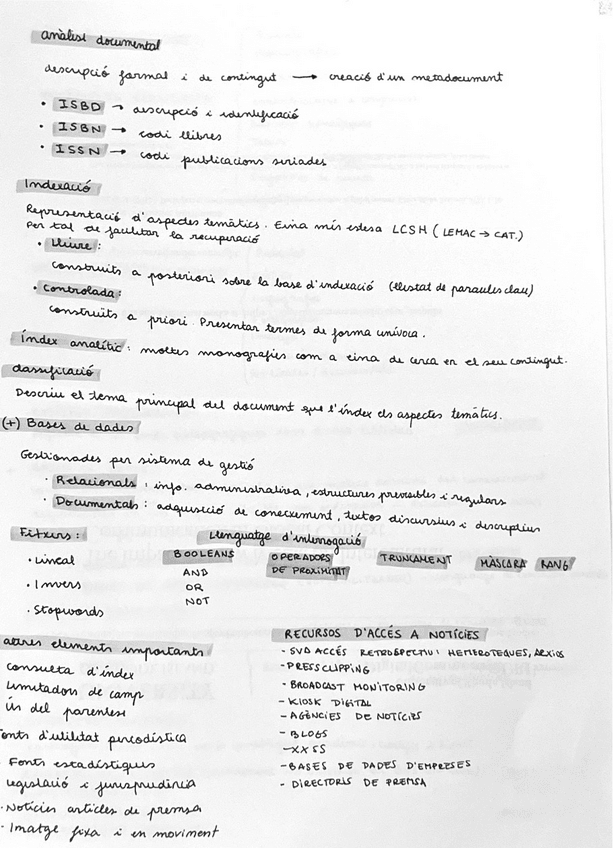 anàlisi documental
descripció formal i de contingut → creació d'un metadocument
• ISBD → descripció i identificació
• ISBN → codi llibres
• ISSN → codi publicacions seriades
Indexació
Representació d'aspectes temàtics. Eina més estesa LCSH (LEMAC → CAT.)
Per tal de facilitar la recuperació
• Lliure:
construïts a posteriori sobre la base d'indexació (llistat de paraules clau)
• Controlada:
construïts a priori. Presentar termes de forma unívoca.
Índex analític: moltes monografies com a eina de cerca en el seu contingut.
classificació
Descriu el tema principal del document que l'índex els aspectes temàtics.
(+) Bases de dades
Gestionades per sistema de gestió
• Relacionals: info. administrativa, estructures previsibles i regulars
• Documentals: adquisició de coneixement, textos discursius i descriptius
Fitxers:
• Lineal
• Invers
• Stopwords
Llenguatge d'interrogació
BOOLEANS OPERADORS DE PROXIMITAT TRUNCAMENT MÀSCARA RANG
AND
OR
NOT
altres elements importants
consulta d'índex
Limitadors de camp
Ús del parèntesi
Fonts d'utilitat periodística
Fonts estadístiques
Legislació i jurisprudència
• Notícies articles de premsa
• Imatge fixa i en moviment
RECURSOS D'ACCÉS A NOTÍCIES
- SVD ACCÉS RETROSPECTIU: HEMEROTEQUES, ARXIOS
- PRESSCLIPPING
- BROADCAST MONITORING
- KIOSK DIGITAL
- AGÈNCIES DE NOTÍCIES
- BLOGS
- XXSS
- BASES DE DADES D'EMPRESES
- DIRECTORIS DE PREMSA